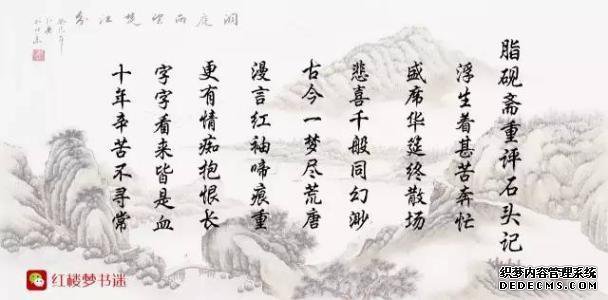 洞庭西望楚江分
脂砚斋重评石头记
浮生着甚苦奔忙
盛席华筵终散场
悲喜千般同幻渺
古今一梦尽荒唐
漫言红袖啼痕重
更有情痴抱恨长
字字看来皆是血
十年辛苦不寻常
红楼梦书迷
织梦内容管理系统
DEDECMS.COM